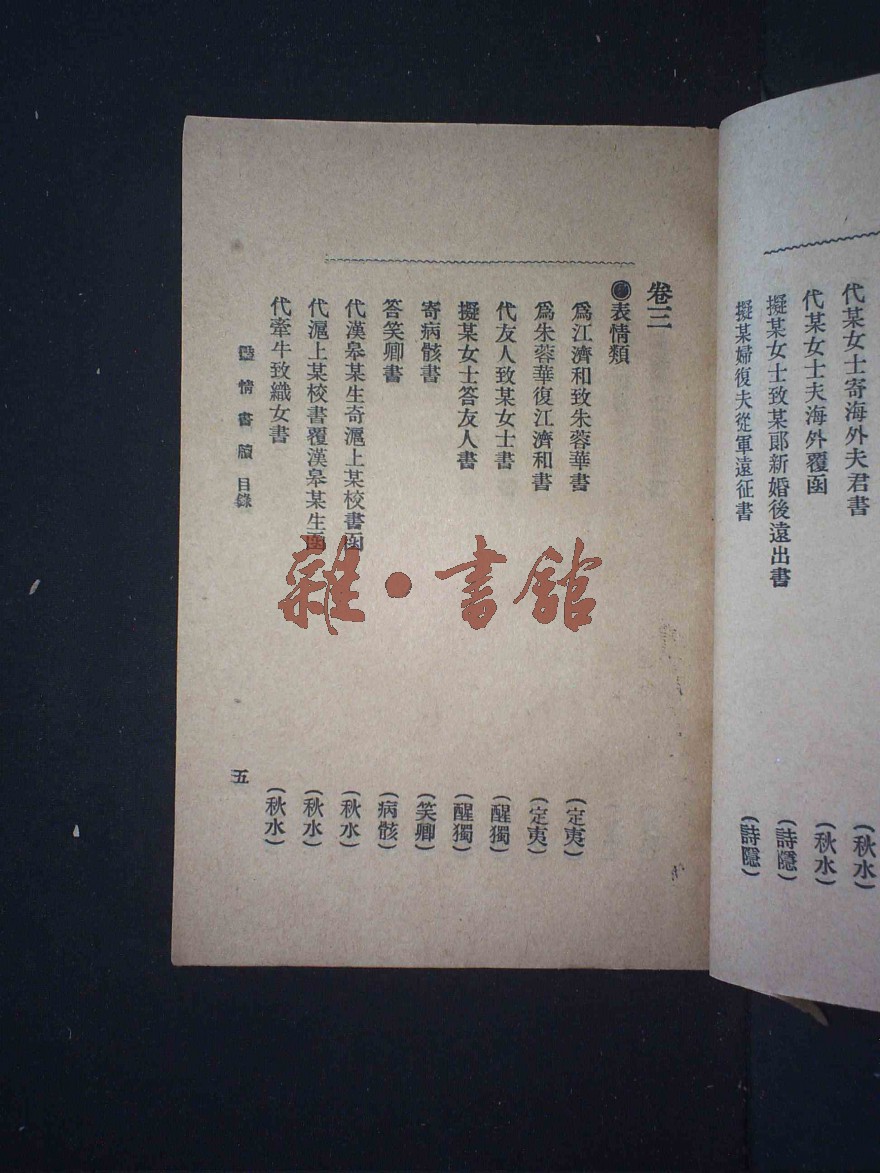 代某女士寄海外夫君書
(秋水)
代某女士夫海外覆函
(秋水)
擬某女士致某郎新婚後遠出書
(詩隱)
擬某婦復夫從軍遠征書
(詩隱)
卷三
●表情類
為江濟和致朱蓉華書
(定夷)
為朱蓉華復江濟和書
(定夷)
代友人致某女士書
(醒獨)
擬某女士答友人書
(醒獨)
寄病骸書
(笑卿)
答笑卿書
(病骸)
代漢皋某生奇滬上某校書函
(秋水)
代滬上某校書覆漢皋某生函
(秋水)
代牽牛致織女書
(秋水)
豔情書牘 目錄
五
雜·書館